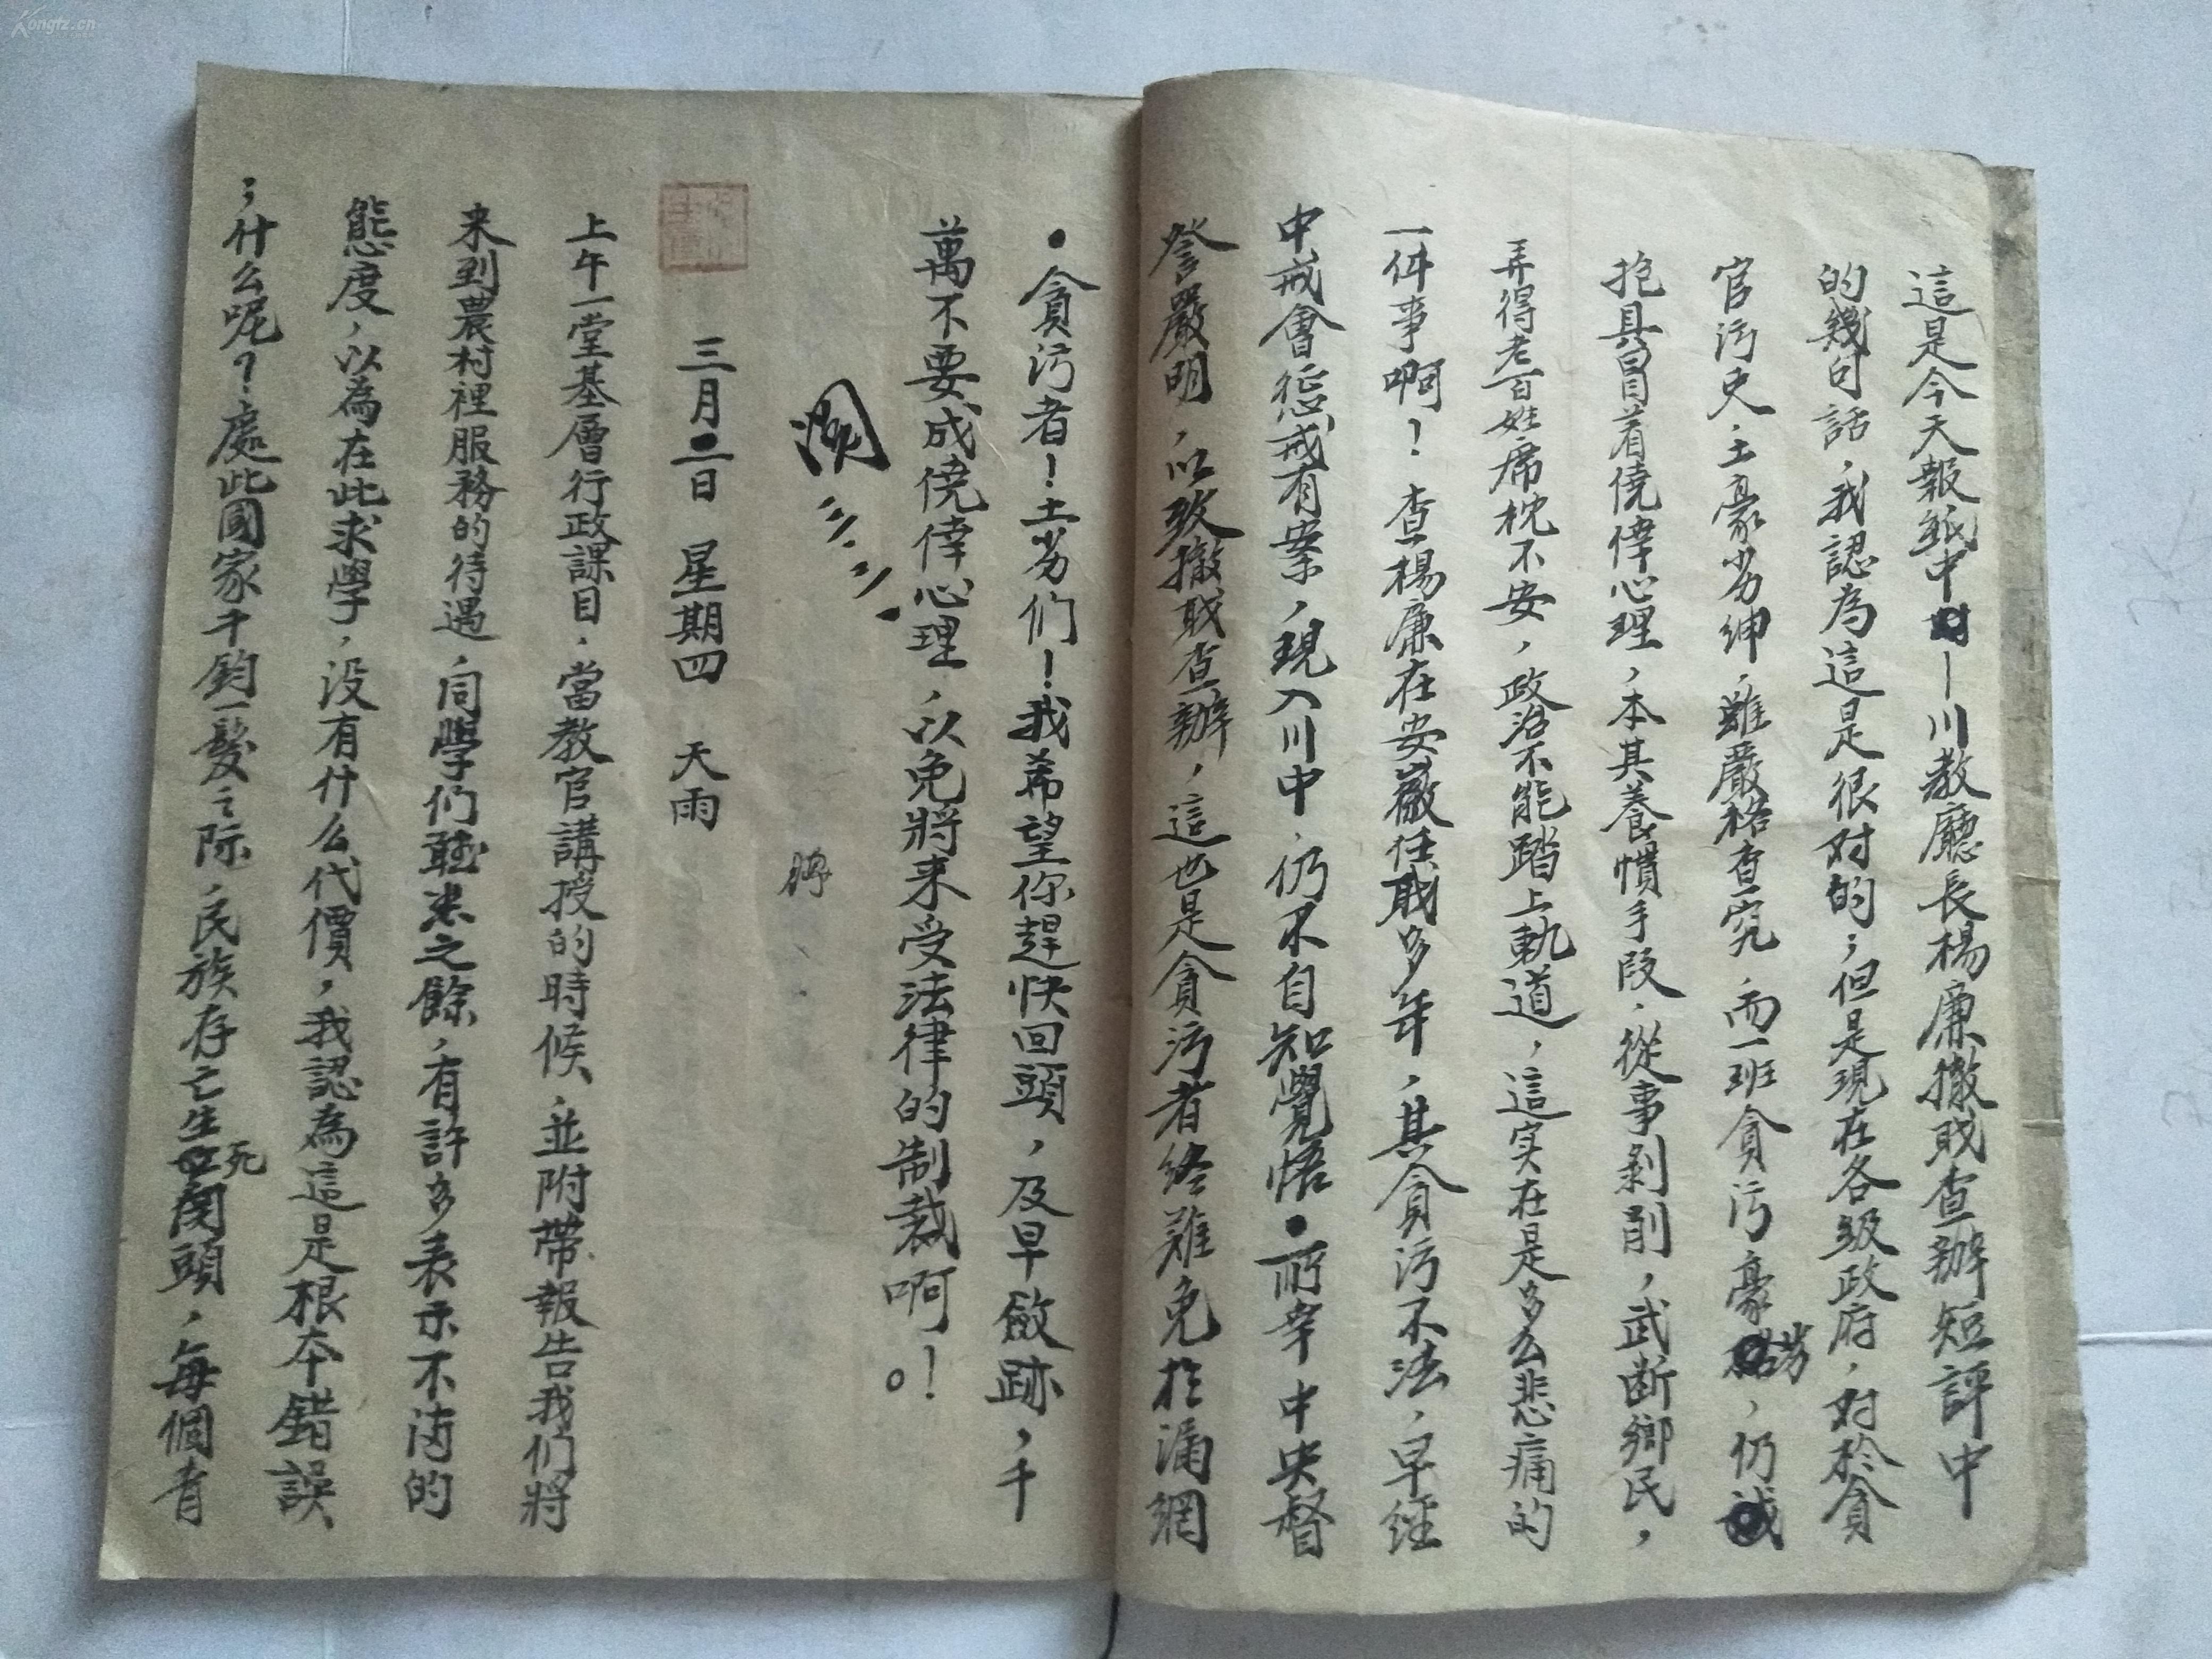 這是今天報紙中—川教廳長楊廉撤戝查辦短評中
的幾句話，我認為這是很对的；但是現在各級政府，对於貪
官污吏，土豪劣紳，雖嚴格查究，而一班貪污豪劣，仍
抱具冒着僥倖心理，本其養慣手段，從事剝削，武断鄉民，
弄得老百姓席枕不安，政治不能踏上軌道，這实在是多么悲痛的
一件事啊！查楊廉在安徽任戝多年，其貪污不法，早經
中戒會惩戒有案，現入川中，仍不自知覺悟·所幸中央督
詧嚴明，以致撤戝查辦，這也是貪污者終难免於漏網
·貪污者！土劣们！我希望你趕快回頭，及早斂跡，千
萬不要成僥倖心理，以免將来受法律的制裁啊！。
閱 三.三.
三月二日 星期四 天雨
上午一堂基層行政課目，當教官講授的時候，並附带報告我们將
来到農村裡服務的待遇，同學们聽悉之餘，有許多表示不满的
態度，以為在此求學，没有什么代價，我認為這是根本錯誤
；什么呢？處此國家千鈞一髮之际，民族存亡生死関頭，每個青
Kongfz.cn